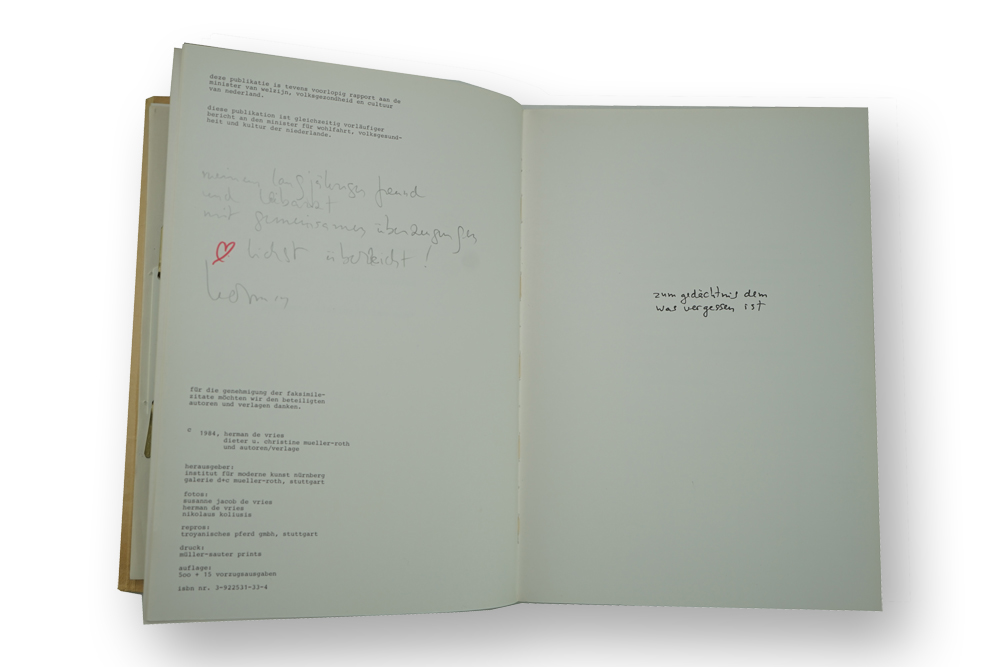 deze publikatie is tevens voorlopig rapport aan de
minister van welzijn, volksgezondheid en cultuur
van nederland.
diese publikation ist gleichzeitig vorläufiger
bericht an den minister für wohlfahrt, volksgesund-
heit und kultur der niederlande.
meinem langjährigen freund
und
mit gemeinsamen überzeugungen
lichst überreicht !
herman
für die genehmigung der faksimile-
zitate möchten wir den beteiligten
autoren und verlagen danken.
c 1984, herman de vries
dieter u. christine mueller-roth
und autoren/verlage
herausgeber:
institut für moderne kunst nürnberg
galerie d+c mueller-roth, stuttgart
fotos:
susanne jacob de vries
herman de vries
nikolaus koliusis
repros:
troyanisches pferd gmbh, stuttgart
druck:
müller-sauter prints
auflage:
500 + 15 vorzugsausgaben
isbn nr. 3-922531-33-4
zum gedächtnis dem
was vergessen ist